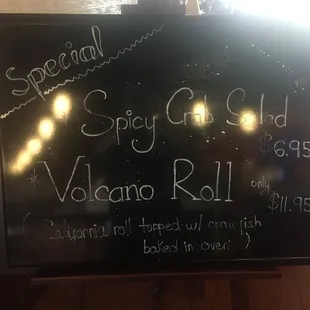 Special
* Spicy Crab Salad
$6.95
* Volcano Roll only
$11.95
( California roll topped w/ crawfish
baked in oven )